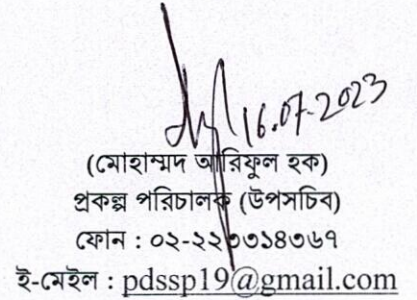 16.07.2023
(মোহাম্মদ আরিফুল হক)
প্রকল্প পরিচালক (উপসচিব)
ফোন : ০২-২২৩৩১৪৩৬৭
ই-মেইল : pdssp19@gmail.com